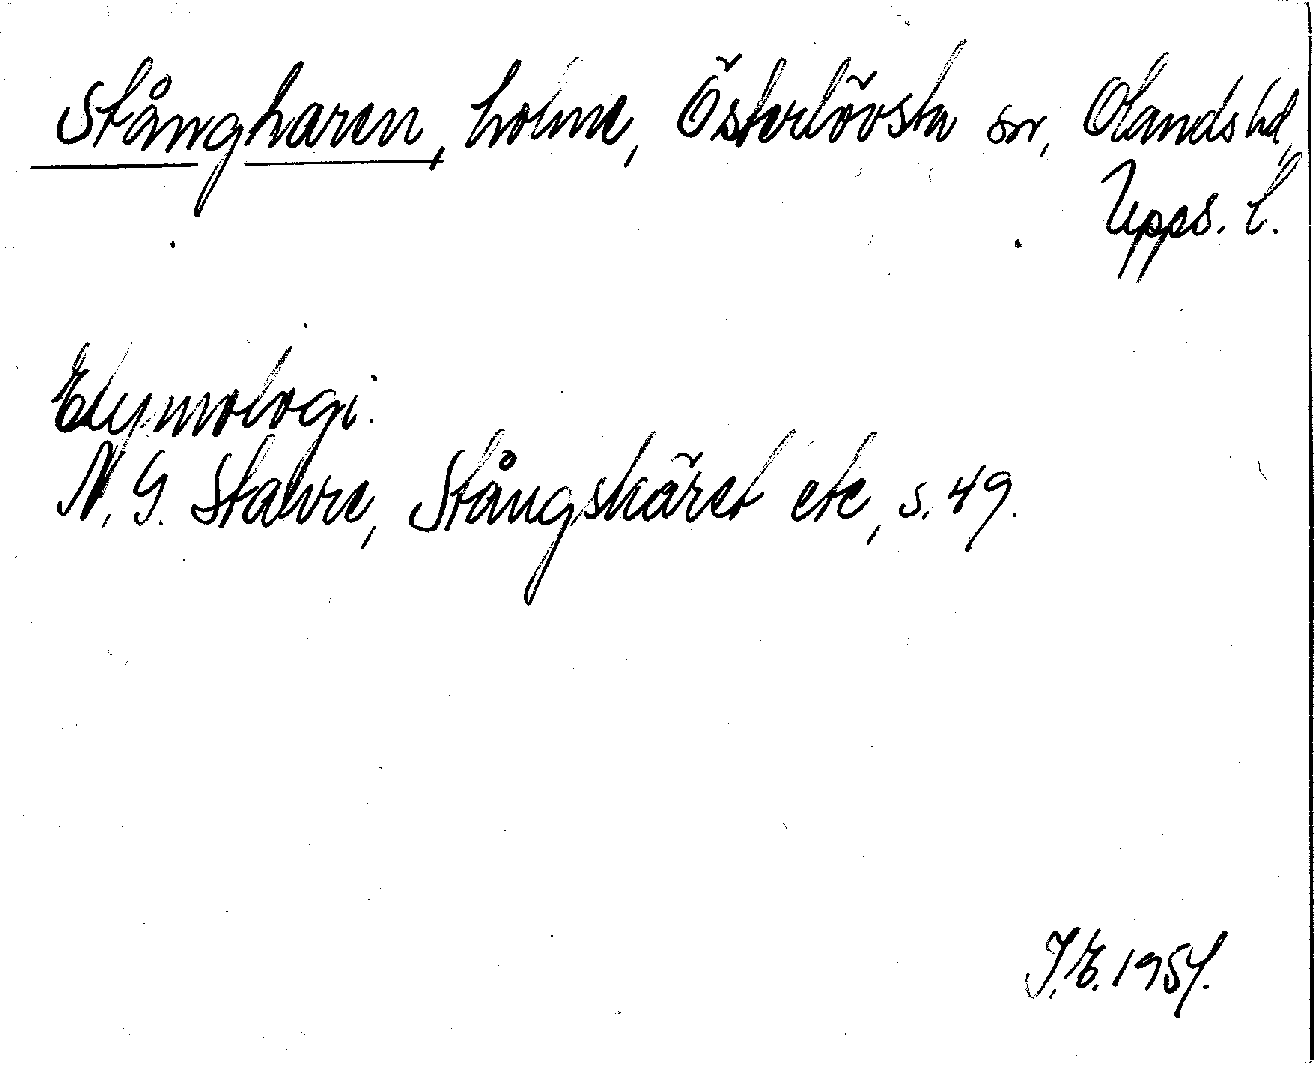 Stångharen, holme, Österlövsta sn, Olands hd,
Upps. l.
Etymologi.
N. G. Stahre, Stångskäret etc, s. 49.
J. E. 1957.